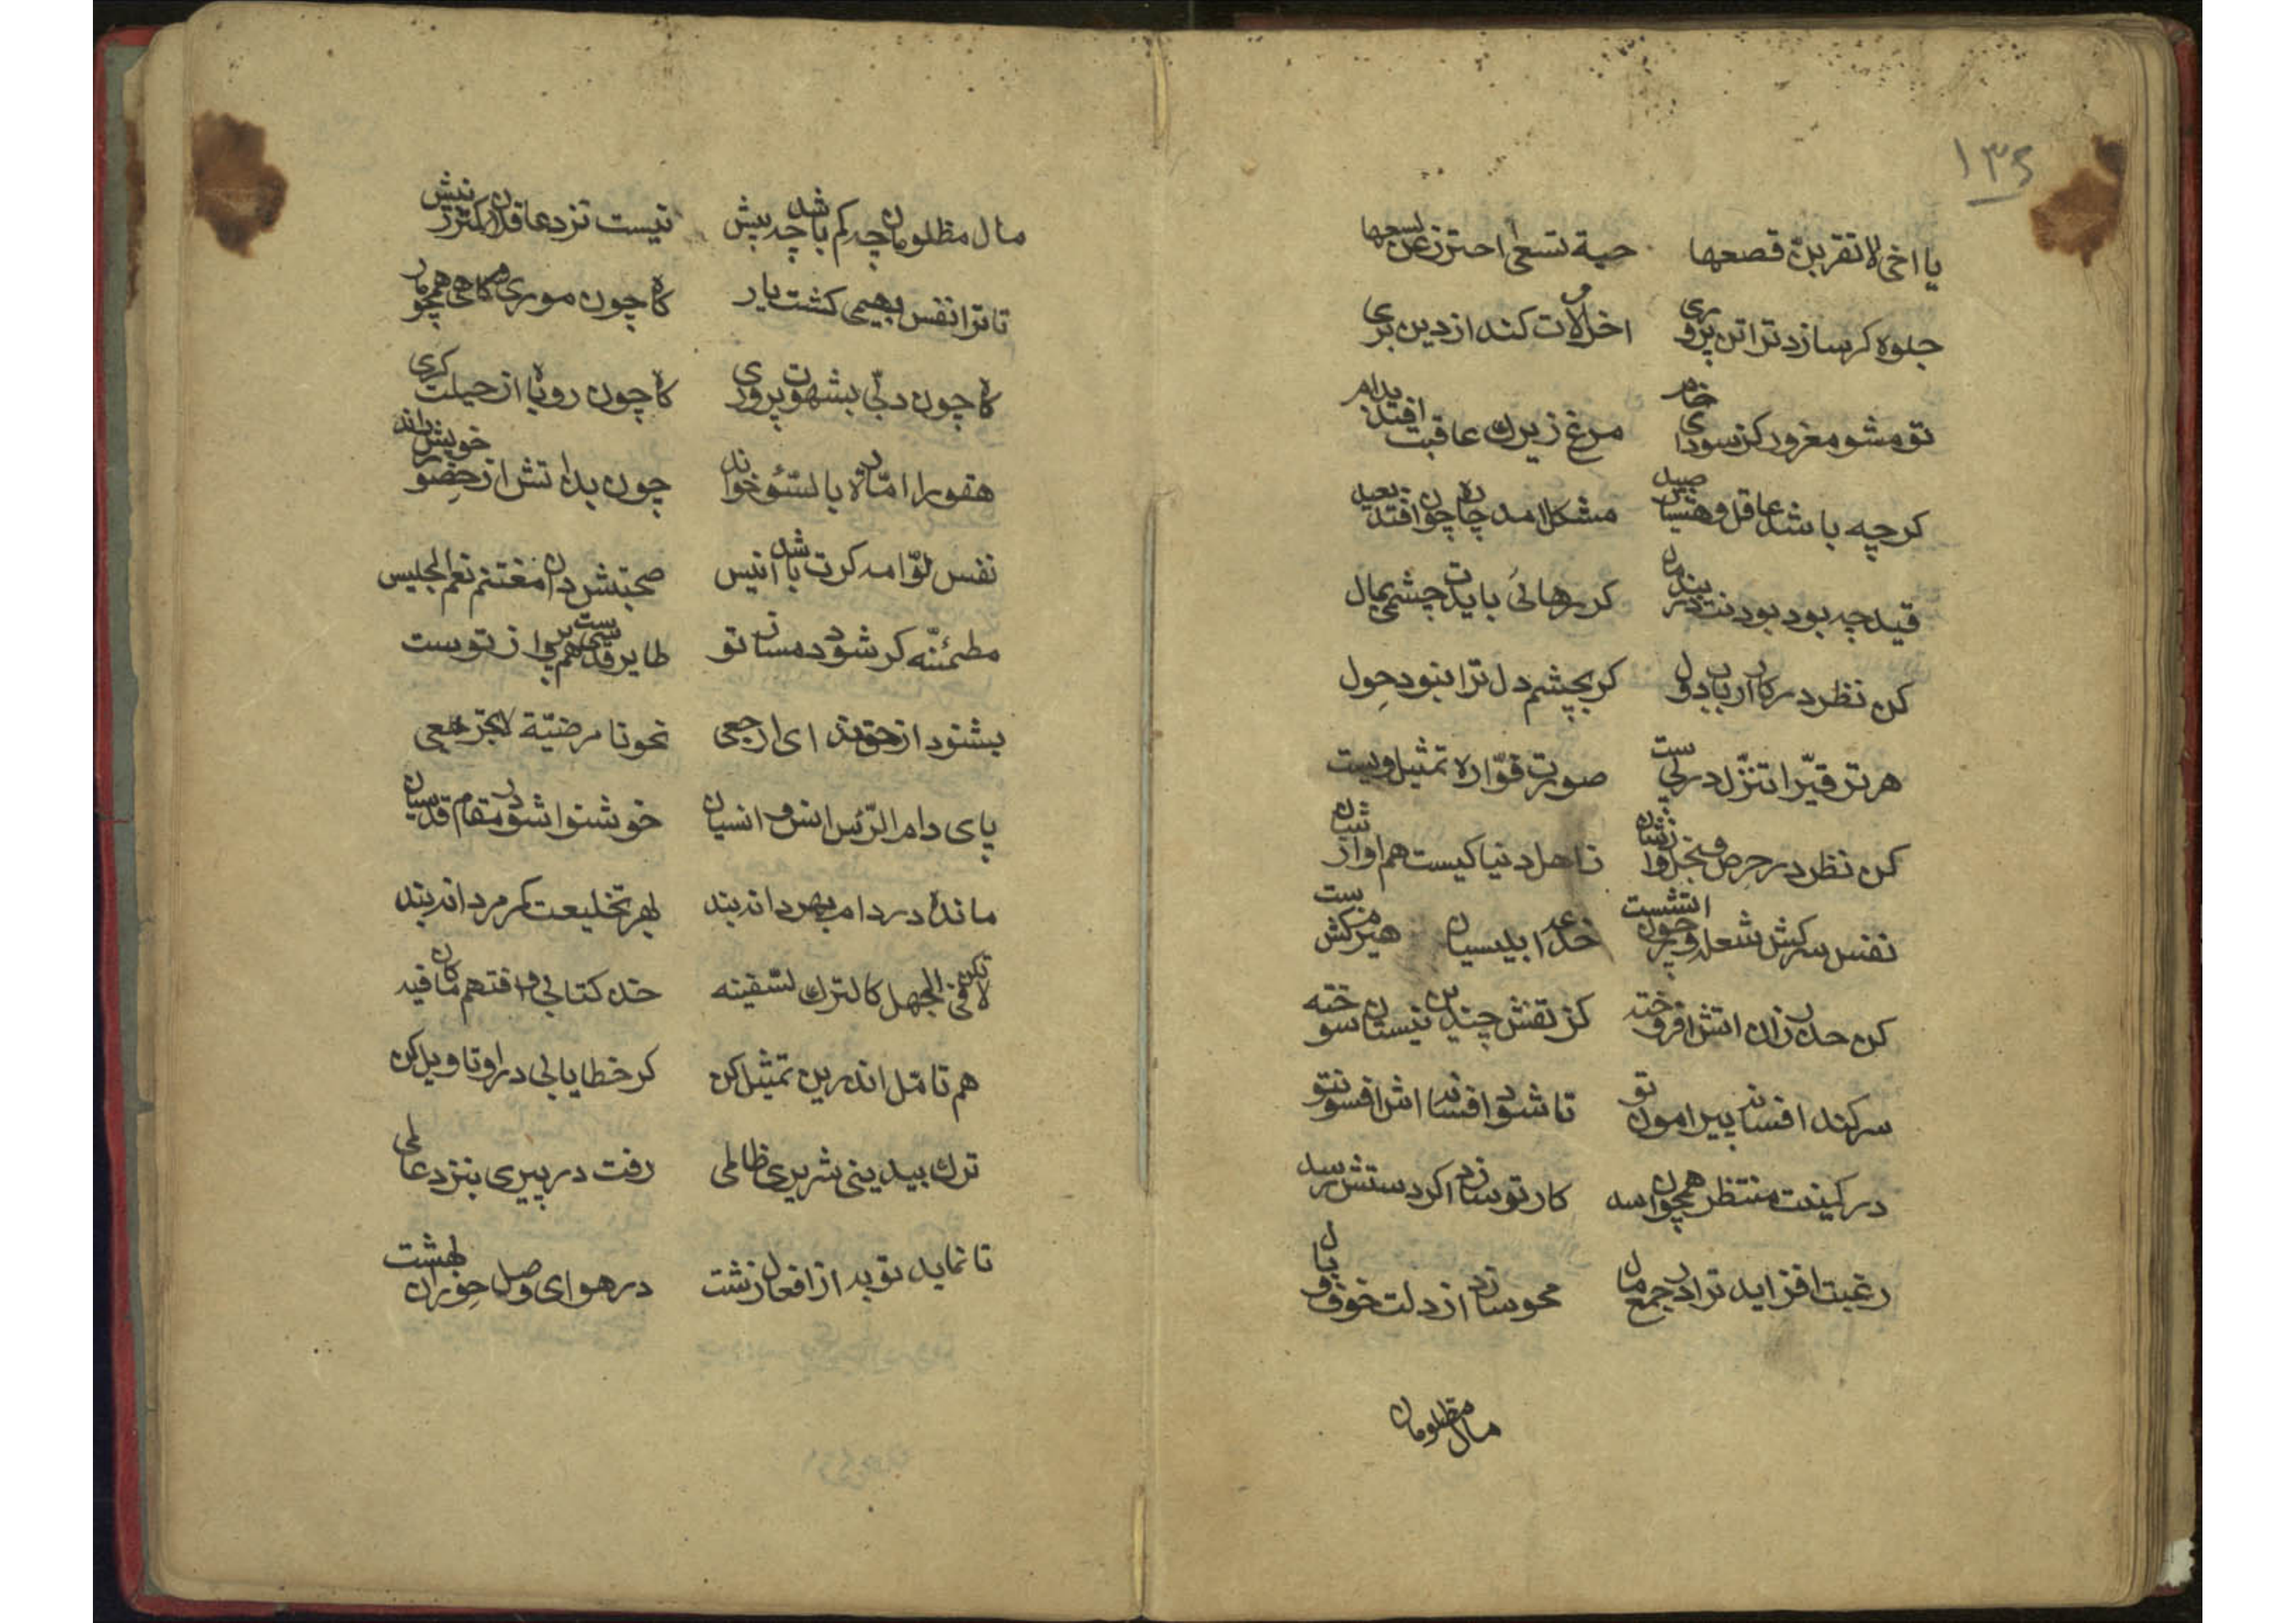 ١٣٤
يا اخى لا تقربنّ قصعها حية تسعى احترز عن لسعها
جلوه كر سازد ترا تن پرورى اخر لات كند از دين برى
تو مشو مغرور كز سوداى خام مرغ زيرك عاقبت افتد بدام
كرچه باشد عاقل و هشيار صيد مشكل امد چاره چون افتد بقيد
قيد چه بود بودنت در بند مال كر رهائى بايدت چشمى بمال
كن نظر در كار ارباب دول كر بچشم دل ترا نبود حِول
هر ترقيّرا تنزّل در پيست صورت فوّاره تمثيل ويست
كن نظر در حرص و بخل وازشان ز اهل دنيا كيست هم اوازشان
نفس سركش شعله وچون اتشست خدعۀ ابليسيان هيزم كشست
كن حذر زان اتش افروخته كز تفش چندين نيستان سوخته
سر كند افسانه پيرامون تو تا شود افسانه اش افسون تو
در كمينت منتظر همچون اسد كار تو سازد اكر دستش رسد
رغبت افزايد ترا در جمع مال محو سازد از دلت خوف وبال
مال مظلومان
مال مظلومان چه كم باشد چه بيش نيست نزد عاقلان كمتر ز نيش
تا ترا نفس بهيمى كشت يار كاه چون مورى و كاهى همچو مار
كاه چون دبّى بشهوت پرورى كاه چون روباه از حيلت كرى
هقو را امّاره بالسّوء خواند چون بداتش از حِضور خويش راند
نفس لوّامه كرت باشد انيس صحبتش دان مغتنم نعم الجليس
مطمئنّه كر شود دمساز تو طاير قدسيست هم پرواز تو
بشنود از حق نداى ارجعى نحونا مرضيّة لا تجزعى
پاى دام الرّئس انس و انسيان خوشنوا شو در مقام قدسيان
مانده در دام بهر دانه بند بهر تخليعت كمر مردانه بند
لا تكن فى الجهل كالترك السّفيه خذ كتابى و افتهم ما كان فيه
هم تامّل اندرين تمثيل كن كر خطا يابى در او تاويل كن
ترك بيدينى شريرى ظالمى رفت در پيرى بنزد عالمى
تا نمايد توبه از افعال زشت در هواى وصل حوران بهشت